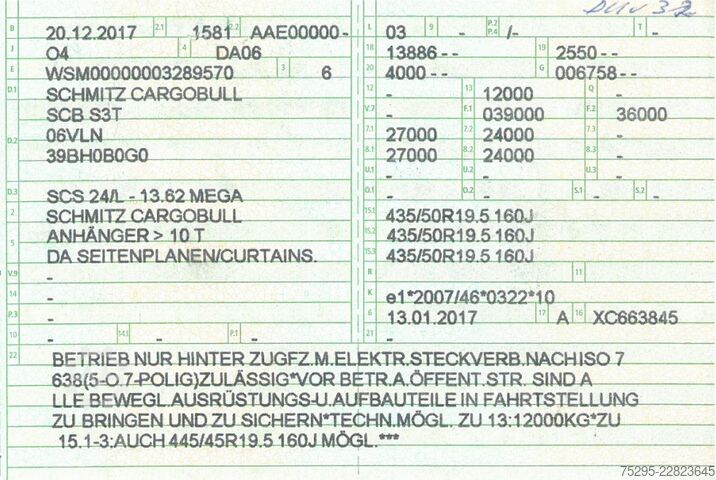 DUV 32
B 20.12.2017 2.1 1581 2.2 AAE00000 -
J O4 4 DA06
E WSM00000003289570 3 6
D.1 SCHMITZ CARGOBULL
SCB S3T
D.2 06VLN
39BH0B0G0
D.3 SCS 24/L - 13.62 MEGA
2 SCHMITZ CARGOBULL
5 ANHÄNGER > 10 T
DA SEITENPLANEN/CURTAINS.
V.9 -
14 -
P.3 -
10 - 14.1 - P.1 -
L 03 9 - P.2 P.4 /- T -
18 13886 - - 19 2550 - -
20 4000 - - G 006758 - -
12 - 13 12000 Q -
V.7 - F.1 039000 F.2 36000
7.1 27000 7.2 24000 7.3 -
8.1 27000 8.2 24000 8.3 -
U.1 - U.2 - U.3 -
O.1 - O.2 - S.1 - S.2 -
15.1 435/50R19.5 160J
15.2 435/50R19.5 160J
15.3 435/50R19.5 160J
R - 11 -
K e1*2007/46*0322*10
6 13.01.2017 17 A 16 XC663845
21 -
22 BETRIEB NUR HINTER ZUGFZ.M.ELEKTR.STECKVERB.NACH ISO 7
638(5-O.7-POLIG)ZULÄSSIG*VOR BETR.A.ÖFFENT.STR. SIND A
LLE BEWEGL.AUSRÜSTUNGS-U.AUFBAUTEILE IN FAHRTSTELLUNG
ZU BRINGEN UND ZU SICHERN*TECHN.MÖGL. ZU 13:12000KG*ZU
15.1-3:AUCH 445/45R19.5 160J MÖGL.***
75295-22823645